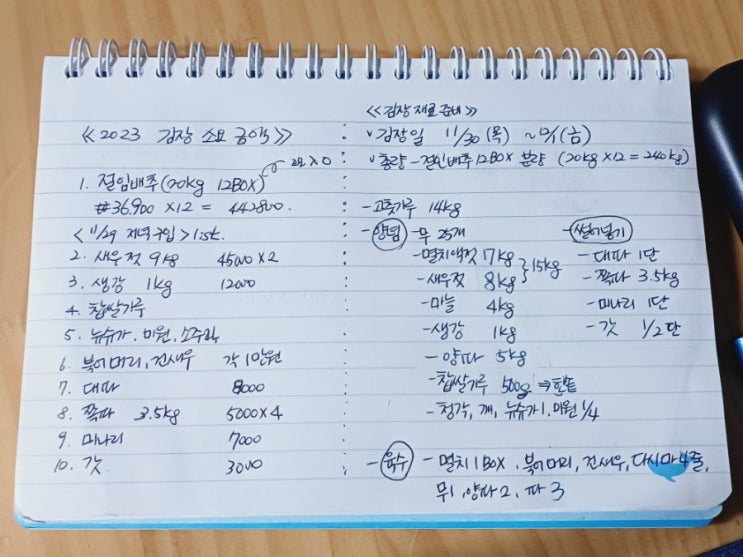 《2023 김장 소요 금액》
1. 절임배추(20kg 12BOX)
#36.900 ×12 = 442800.
<11/29 저녁구입> list.
2. 새우젓 9kg 4500×2
3. 생강 1kg 12000
4. 찹쌀가루
5. 뉴슈가. 미원. 소주
6. 북어머리, 건새우 각 1만원
7. 대파 8000
8. 쪽파 3.5kg 5000×4
9. 미나리 7000
10. 갓 3000
《김장재료준비》
∨김장일 11/30(목) ~ 12/1(금)
∨총량 - 절인배추12BOX 분량 (20kg ×12 = 240kg)
- 고춧가루 14kg
- 양념 - 무 25개
- 멸치액젓 7kg
- 새우젓 8kg } 15kg
- 마늘 4kg
- 생강 1kg
- 양파 5kg
- 찹쌀가루 500g ⇒
- 청각, 깨, 뉴슈가1. 미원 1/4
썰어넣기
- 대파 1단
- 쪽파 3.5kg
- 미나리 1단
- 갓 1/2단
- 육수 - 멸치 1BOX. 북어머리, 건새우, 다시마4줄,
무1, 양파2, 파3